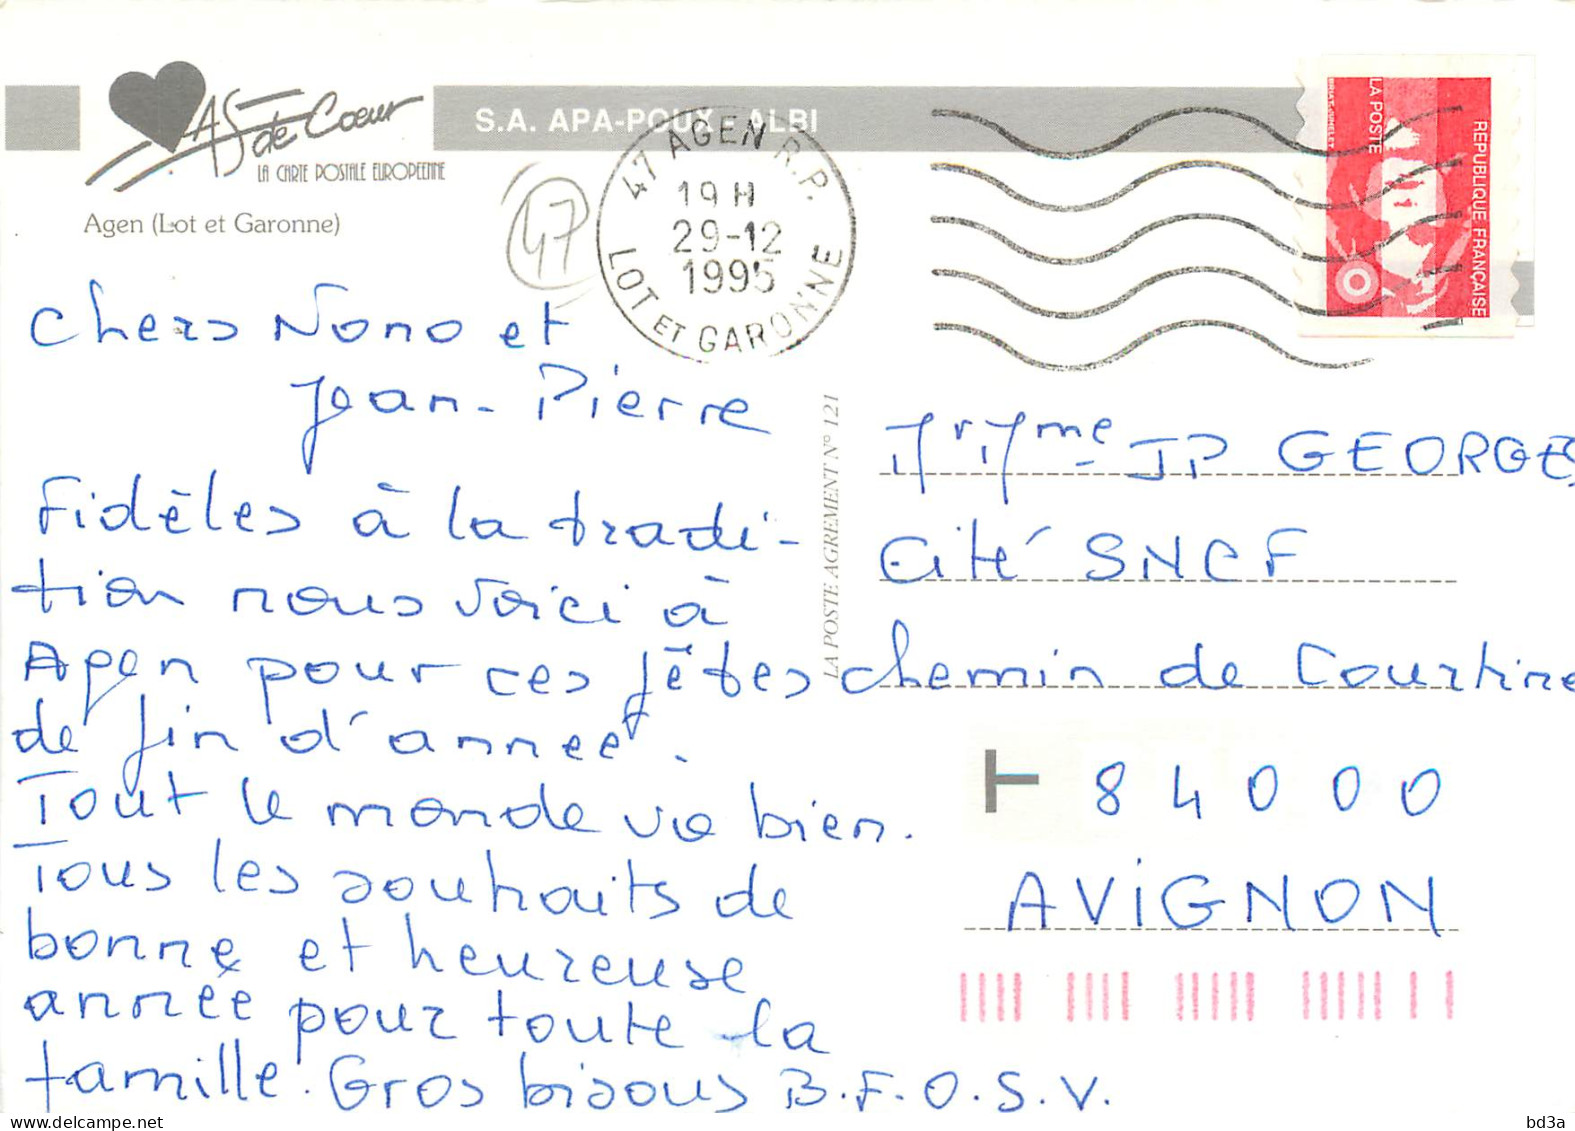 AS de Coeur
LA CARTE POSTALE EUROPEENNE
S.A. APA-POUX - ALBI
Agen (Lot et Garonne)
47
47 AGEN R.P.
19 H
29-12
1995
LOT ET GARONNE
LA POSTE
REPUBLIQUE FRANÇAISE
BRIAT-JUMELET
LA POSTE AGREMENT N° 121
Chers Nono et
Jean-Pierre
Fidèles à la tradi-
tion nous voici à
Agen pour ces fêtes
de fin d'année.
Tout le monde va bien.
Tous les souhaits de
bonne et heureuse
année pour toute la
famille. Gros bisous B.F.O.S.V.
Mr Mme JP GEORGE
Cité SNCF
chemin de Courtine
84000
AVIGNON
delcampe.net
bd3a